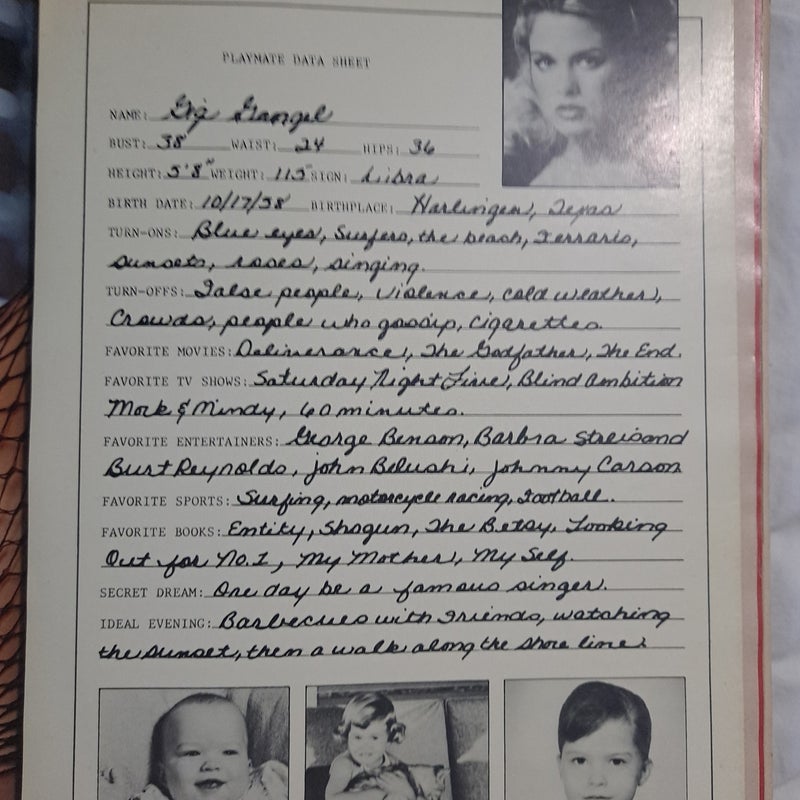 PLAYMATE DATA SHEET
NAME: Gig Gangel
BUST: 38 WAIST: 24 HIPS: 36
HEIGHT: 5'8" WEIGHT: 115 SIGN: Libra
BIRTH DATE: 10/17/58 BIRTHPLACE: Harlingen, Texas
TURN-ONS: Blue eyes, Surfers, the beach, Ferraris,
sunsets, roses, singing.
TURN-OFFS: False people, violence, cold weather,
Crowds, people who gossip, cigarettes.
FAVORITE MOVIES: Deliverance, The Godfather, The End.
FAVORITE TV SHOWS: Saturday Night Live, Blind Ambition
Mork & Mindy, 60 minutes.
FAVORITE ENTERTAINERS: George Benson, Barbra Streisand
Burt Reynolds, John Belushi, Johnny Carson
FAVORITE SPORTS: Surfing, motorcycle racing, Football.
FAVORITE BOOKS: Entity, Shogun, The Betsy, Looking
Out for No. 1, My Mother, My Self.
SECRET DREAM: One day be a famous singer.
IDEAL EVENING: Barbecues with Friends, watching
the sunset, then a walk along the shore line.